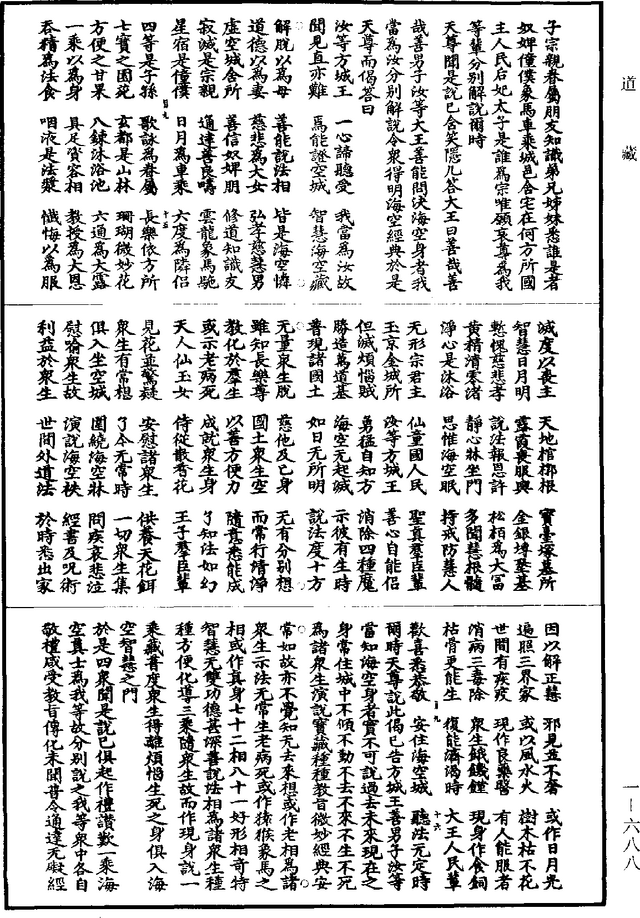 道藏
一-六八八
子宗親眷屬朋友知識弟兄姊妹悉誰是者
奴婢僮僕象馬車乘城邑舍宅在何方所國
主人民后妃太子是誰為宗唯願哀尊為我
等輩分別解說爾時
天尊聞是說已含笑隱几答大王曰善哉善
哉善男子汝等大王善能問決海空身者我
當為汝分別解說令眾得明海空經典於是
天尊而偈答曰
汝等方城王 一心諦聽受 我當為汝故
聞見直亦難 焉能證空城 智慧海空藏
解脫以為母 善能說法相 皆是海空憐
道德以為妻 慈悲為大女 弘孝慈慧男
虛空城舍所 善信奴婢朋 修道知識友
寂滅是宗親 通達善良疇 雲龍象馬馳
星宿是僮僕 日月為車乘 六度為隣侶
四等是子孫 歌詠為眷屬 長樂依方所
七寶之園苑 玄都是山林 珊瑚微妙花
方便之甘果 八鍊沐浴池 六通為大露
一乘以為身 具足資容相 教授為大恩
吞精為法食 咽液是法漿 懺悔以為服
滅度以喪主 天地棺槨根 寶臺塚墓所
智慧日月明 露霞喪服輿 金銀塼墼基
慙愧慈悲孝 說法報恩許 松栢為大冨
黃精清零渚 靜心牀坐門 多聞慧根髓
淨心是沐浴 思惟海空眠 持戒防慧人
无形宗君主 仙童國人民 聖真羣臣輩
玉京金城所 汝等方城王 善心自能侶
但滅煩惱賊 勇猛自知方 消除四種魔
勝造為道基 海空无起滅 示彼有生時
普現諸國土 如日无所明 說法度十方
无量眾生脫 慈他及己身 无有分別想
雖知長樂尊 國土眾生空 而常行清淨
教化於羣生 以善方便力 隨意悉能成
或示老病死 成就眾生身 了知法如幻
天人仙玉女 侍從散香花 王子羣臣輩
見花並驚疑 安慰諸眾生 供養天花餌
眾生有常想 了令无常時 一切眾生集
俱入坐空城 圍繞海空牀 問疾哀悲泣
慰喻眾生故 演說海空袟 經書及呪術
利益於眾生 世間外道法 於時悉出家
因以解正慧 邪見並不奢 或作日月光
遍照三界家 或以風水火 樹木枯不花
世間有疾疫 現作良藥醫 有人能服者
消病三毒除 眾生餓饑饉 現身作食飼
枯骨更能生 復能濟渴時 大王人民輩
歡喜悉恭敬 安住海空城 聽法无定時
爾時天尊說此偈已告方城王善男子汝等
當知海空身者實不可說過去未來現在之
身常住城中不傾不動不去不來不生不死
為諸眾生演說寶藏種種教旨微妙經典安
常如故亦不覺知无去來想或作老相為諸
眾生示法无常生老病死或作猿猴象馬之
相或作真身七十二相八十一好形相奇特
智慧无雙功德甚深善說法相為諸眾生種
種方便化導三乘隨眾生故而作現身說一
乘藏普度眾生得離煩惱生死之身俱入海
空智慧之門
於是四眾聞是說已俱起作禮讚歎一乘海
空真士為我等故分別說之我等眾中各自
敬禮咸受教旨傳化未聞普令通達无礙經